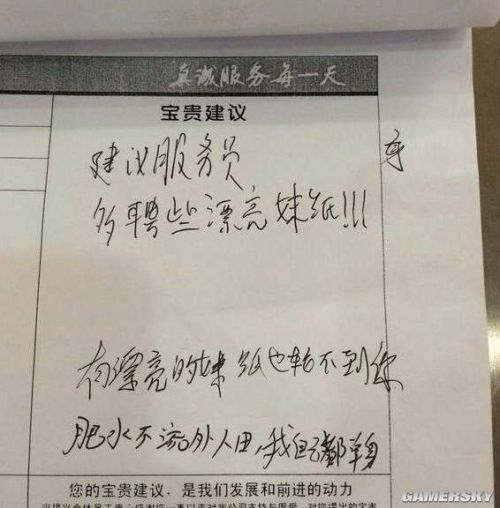 真诚服务每一天
宝贵建议
建议服务员
多聘些漂亮妹纸!!!
有漂亮的妹纸也轮不到你
肥水不流外人田,我自己都单身
您的宝贵建议,是我们发展和前进的动力
GAMERSKY